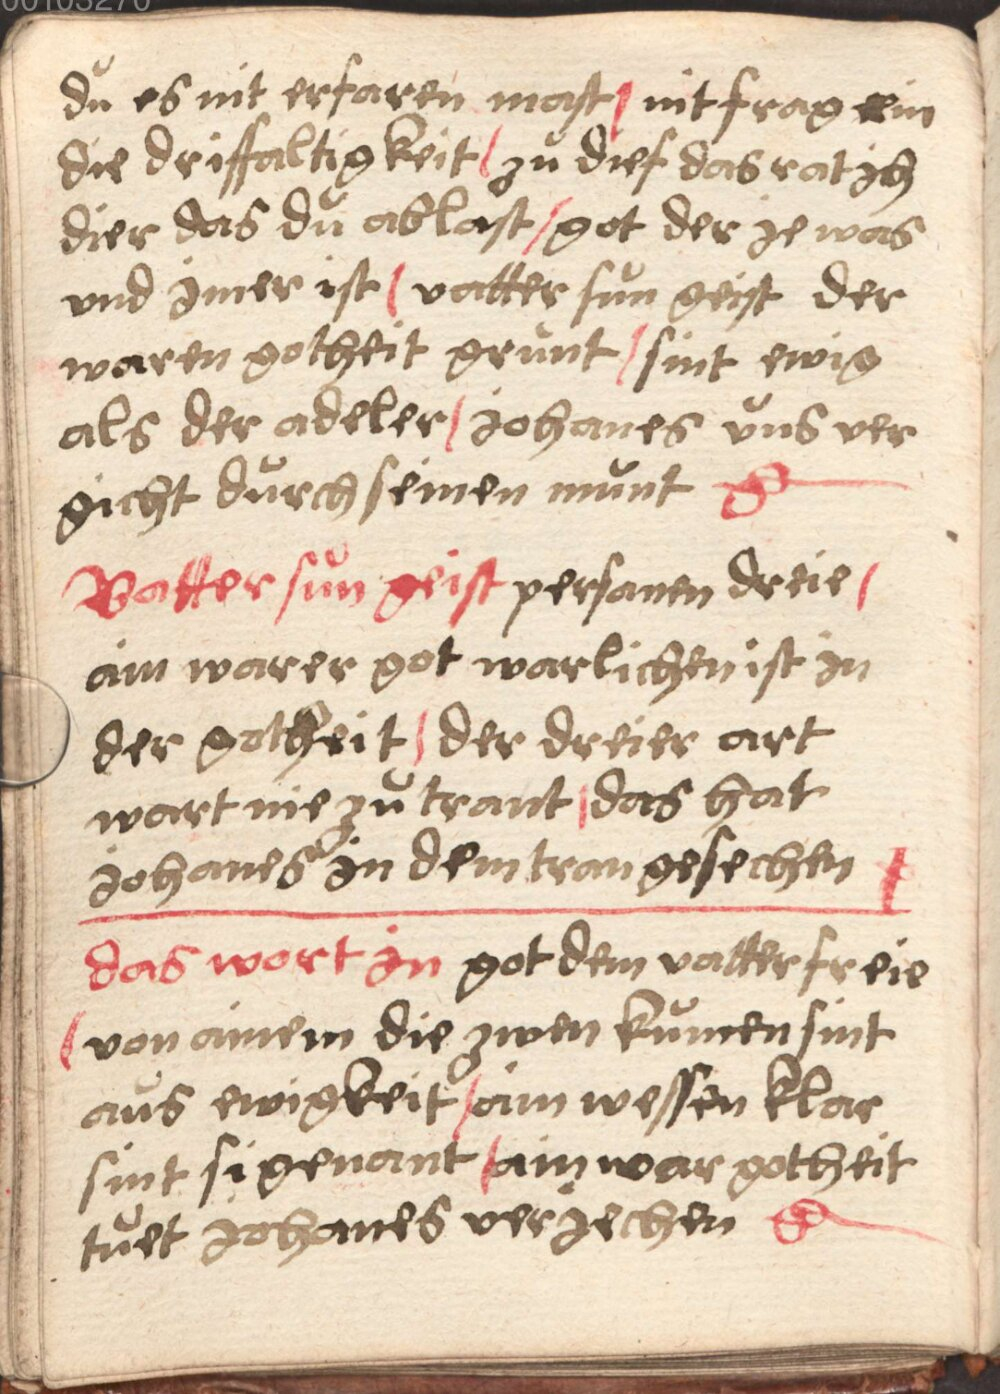 00103270
dů es nit erfaren mast / nit frag ein
die driffaltigkeit / zů dief das rat ich
dier das dů ablast / got der ie was
vnd imer ist / vatter sůn geist der
waren gotheit grůnt / sint ewig
als der adeler / iohanes vůns ver
gicht důrch seinen můnt
Vatter sůn geist personen dreie /
ain warer got warlichen ist in
der gotheit / der dreier art
wart nie zů trant / das hat
iohanes in dem tran gesechen
das wort in got dem vatter freie
/ von ainem die zwen kůmen sint
aůs ewigkeit / ain wessen klar
sint si genant / ain war gotheit
tůet iohanes veriechen